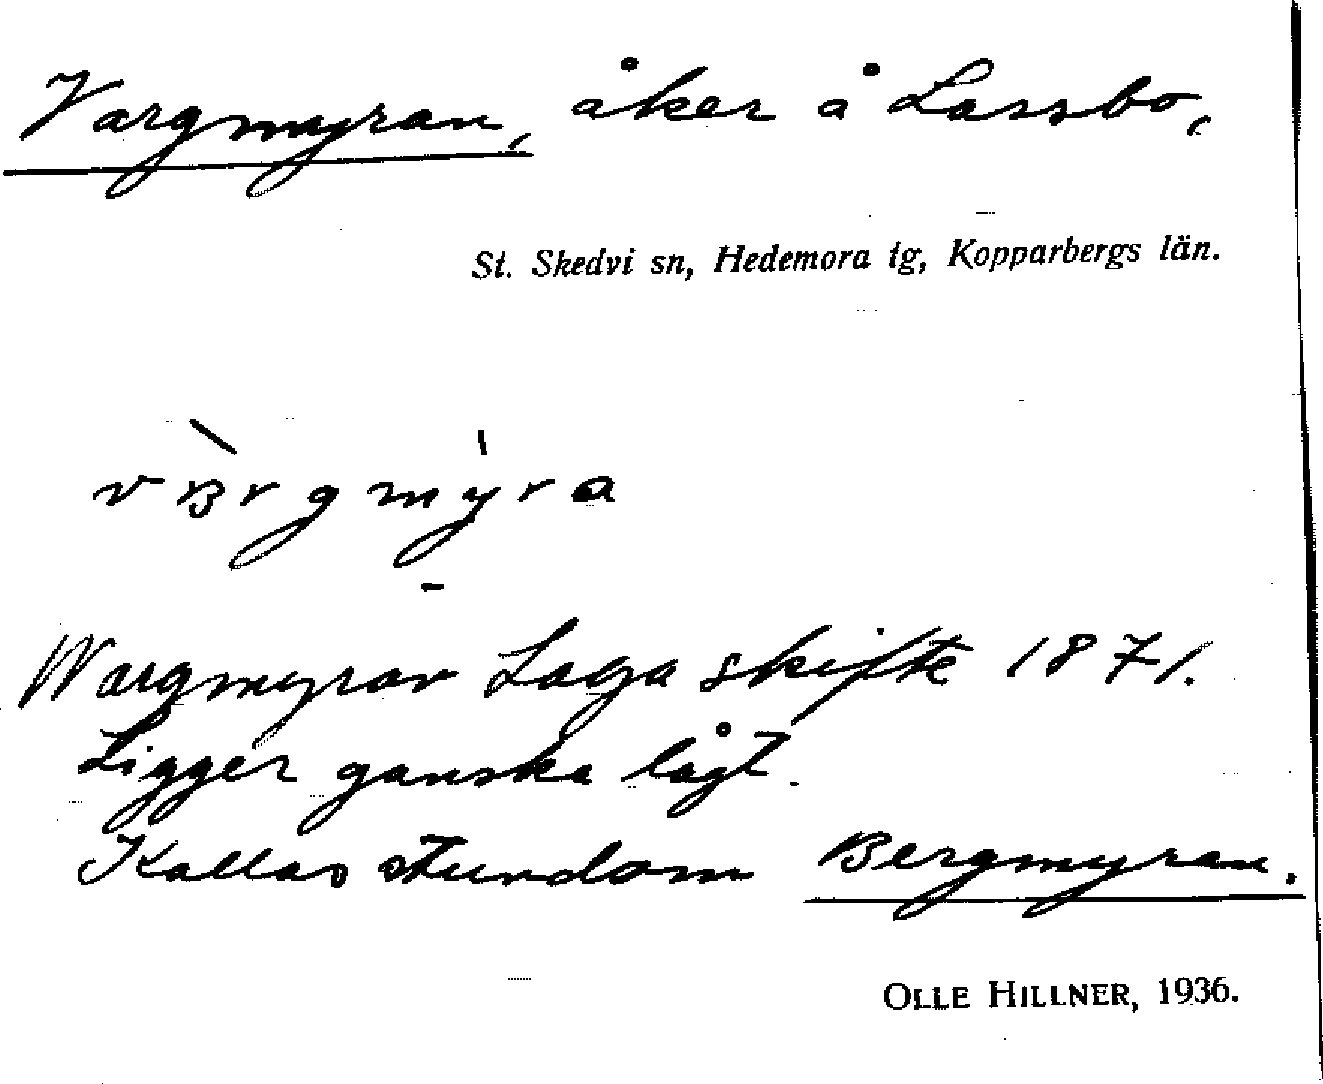 Vargmyran, åker å Lassbo,
St. Skedvi sn, Hedemora tg, Kopparbergs län.
vàrgmýra
Wargmyran Laga skifte 1871.
Ligger ganska lågt.
Kallas stundom Bergmyran.
OLLE HILLNER, 1936.